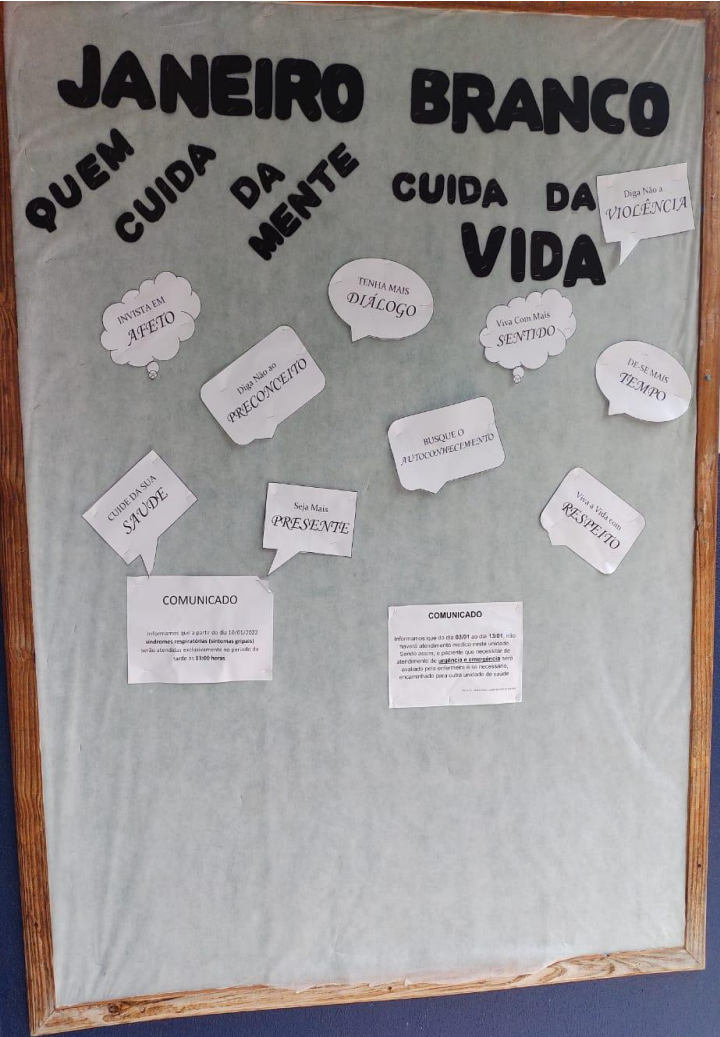 JANEIRO BRANCO
QUEM CUIDA DA MENTE CUIDA DA VIDA
Diga Não a
VIOLÊNCIA
INVISTA EM
AFETO
TENHA MAIS
DIÁLOGO
Viva Com Mais
SENTIDO
Diga Não ao
PRECONCEITO
DE-SE MAIS
TEMPO
BUSQUE O
AUTOCONHECIMENTO
CUIDE DA SUA
SAUDE
Seja Mais
PRESENTE
Viva a Vida com
RESPEITO
COMUNICADO
Informamos que a partir do dia 10/01/2022
síndromes respiratórias (sintomas gripais)
serão atendidas exclusivamente no período da
tarde as 03:00 horas.
COMUNICADO
Informamos que do dia 03/01 ao dia 13/01, não
haverá atendimento medico neste unidade.
Sendo assim, o paciente que necessitar de
atendimento de urgência e emergência será
avaliado pela enfermeira e se necessário,
encaminhado para outra unidade de saúde